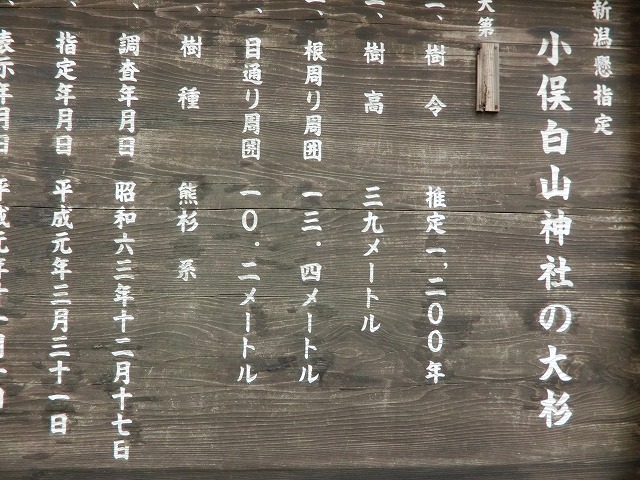 新潟懸指定
小俣白山神社の大杉
天第
一、樹令 推定一、二〇〇年
二、樹高 三九メートル
、根周り周囲 一三.四メートル
、目通り周囲 一〇.二メートル
、樹種 熊杉系
、調査年月日 昭和六三年十二月十七日
、指定年月日 平成元年三月三十一日
表示年月日 平成元年十一月十日